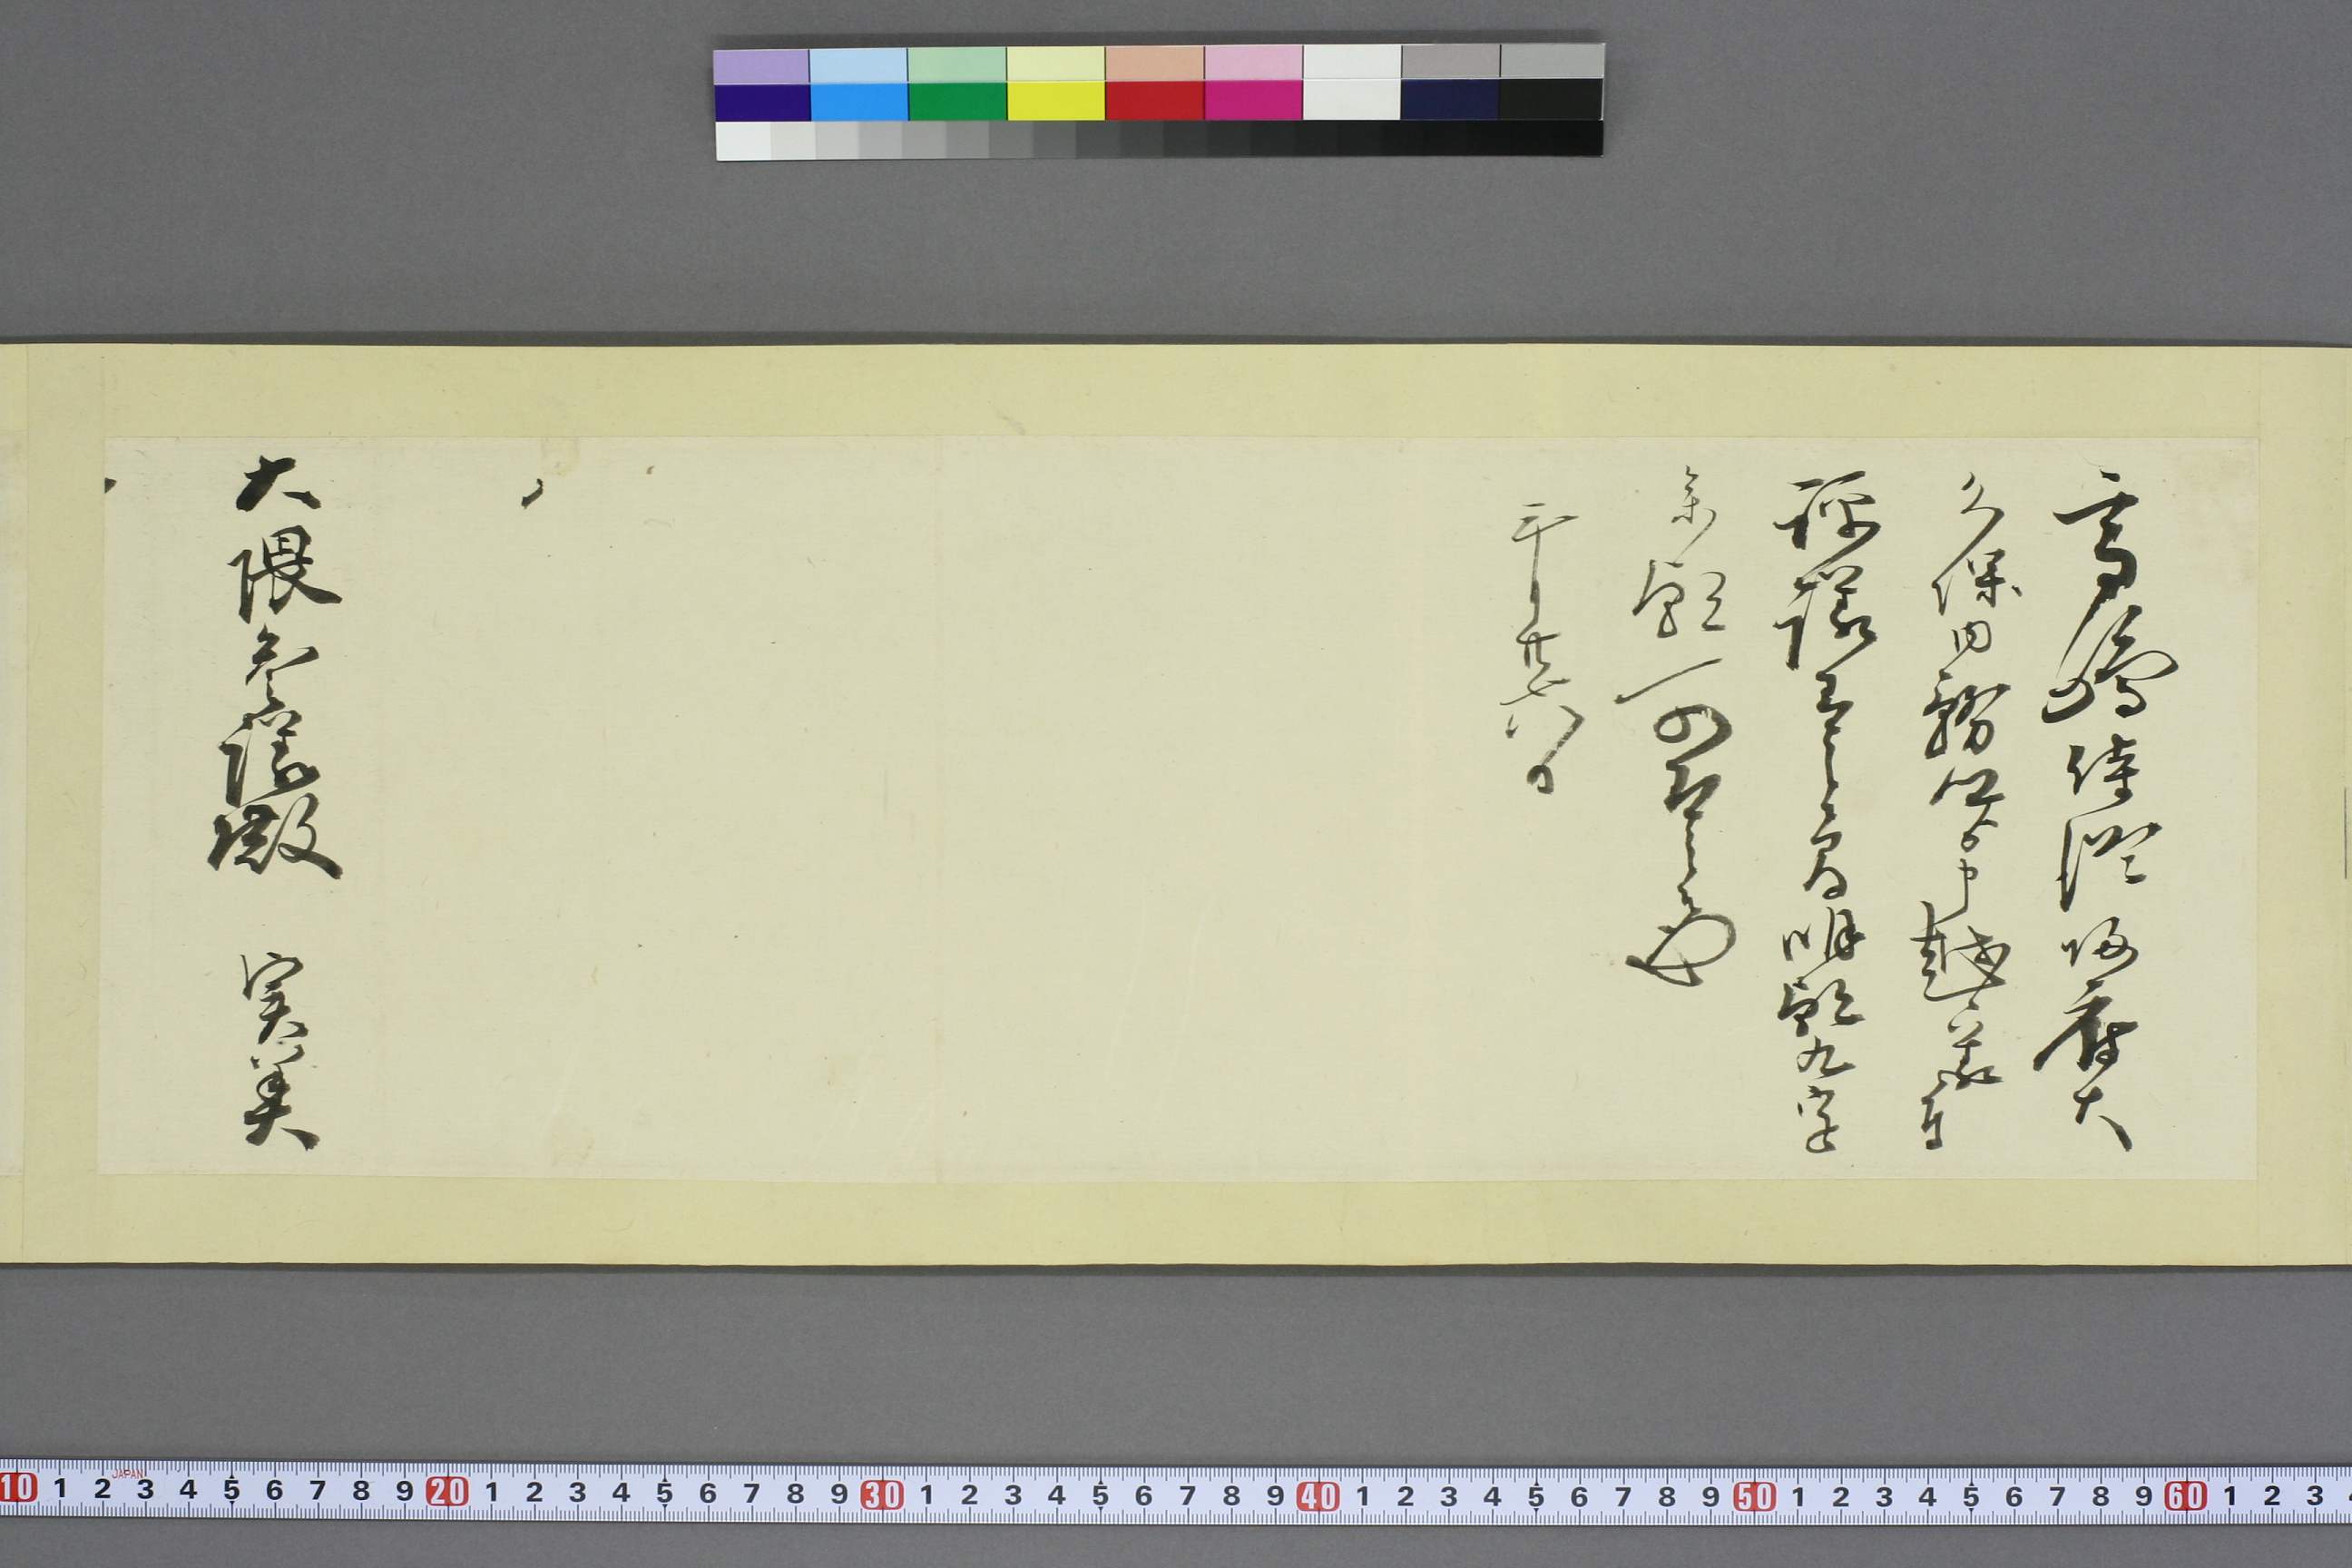 高嶋侍従帰府大
久保内務卿ゟ申越義
評議有之候間明朝九字
参朝可有之候也
月廿六日
大隈参議殿 実美
10 1 2 3 4 5 6 7 8 9 20 1 2 3 4 5 6 7 8 9 30 1 2 3 4 5 6 7 8 9 40 1 2 3 4 5 6 7 8 9 50 1 2 3 4 5 6 7 8 9 60 1 2 3
JAPAN